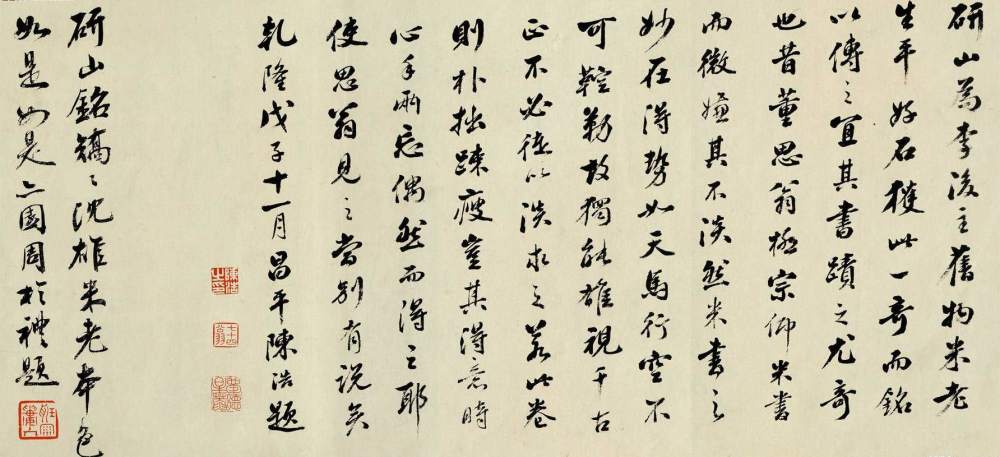 研山為李後主舊物米老
生平好石獲此一奇而銘
以傳之宜其書蹟之尤奇
也昔董思翁極宗仰米書
而微嫌其不淡然米書之
妙在得勢如天馬行空不
可鞚勒故獨能雄視千古
正不必徒以淡求之若此卷
則朴拙疎瘦豈其得意時
心手兩忘偶然而得之耶
使思翁見之當別有說矣
乾隆戊子十一月昌平陳浩題
陳浩之印
研山銘矯〻沈雄米老本色
如是如是亦園周於禮題